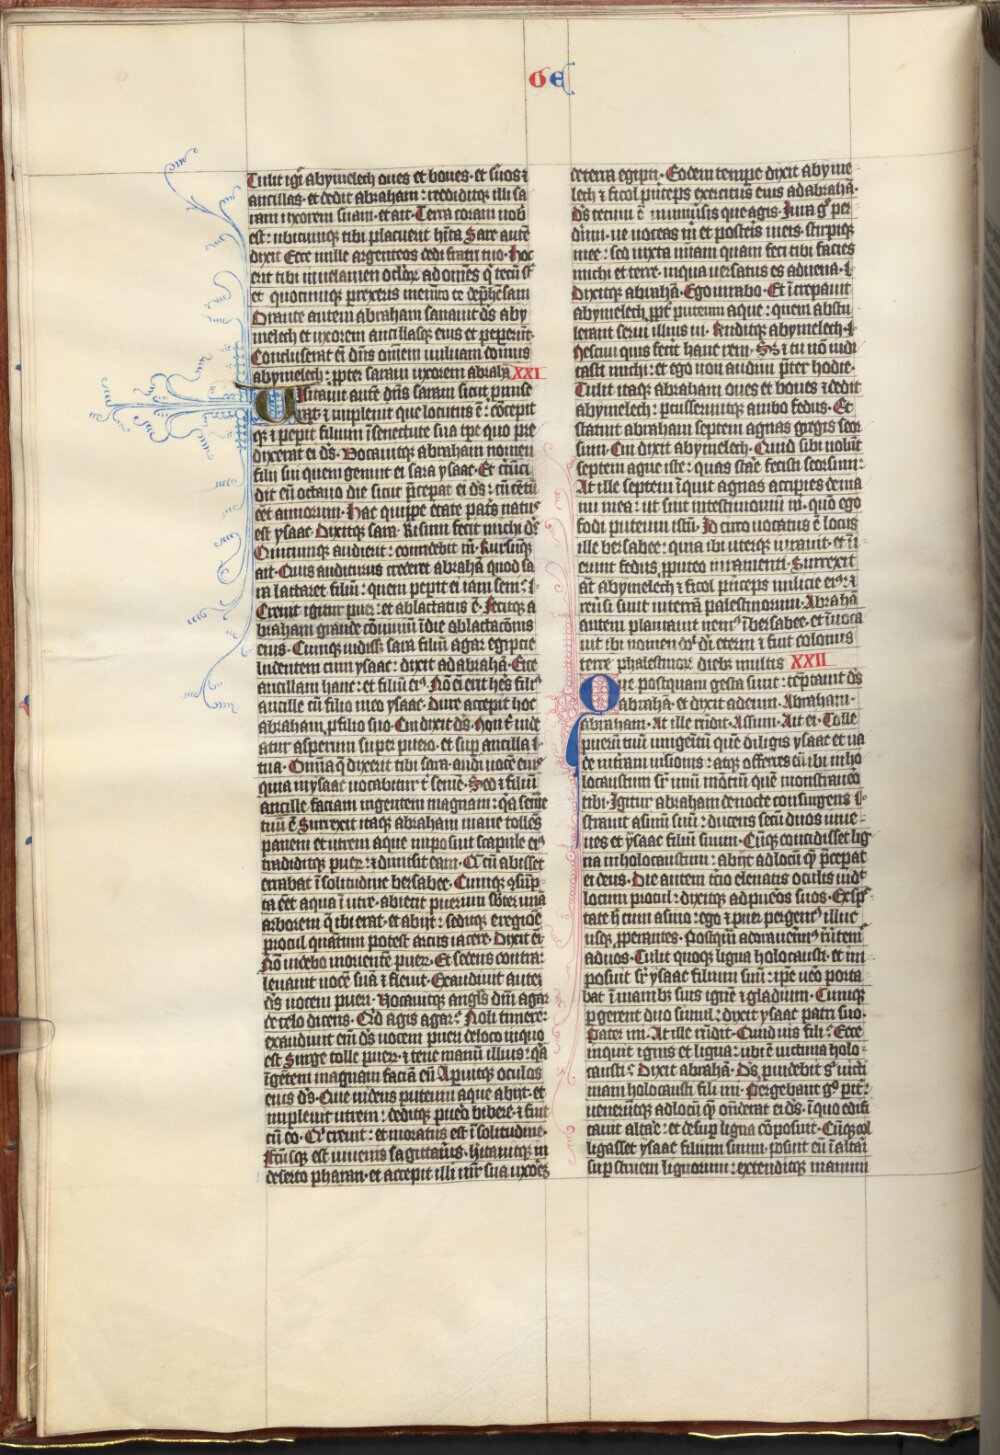 GE
Tulit igr̃ abymelech oues et boues · et s̃uos ⁊
ancillas · et dedit abraham : reddiditqꝫ illi sa
ram uxorem suam · et ait · Terra coram uob̃
est : ubicumqꝫ tibi placuerit h̃ita Sare autẽ
dixit Ecce mille argenteos dedi fratri tuo · hoc
erit tibi in uelamen oclõꝝ ad omẽs q̃ tecũ st̃
et quocumqꝫ prexeris memẽto te dep̃hẽsam
Orante autem abraham sanauit ds̃ aby
melech et uxorem ancillasqꝫ eius et peperũt ·
Concluserat eĩ dñs omẽm uuluam domus
abymelech : ꝓpter saram uxorem abrahã XXI
Uisitauit autẽ dñs saram sicut ꝓmise
rat · ⁊ impleuit que locutus ẽ : cõcepit
qꝫ ⁊ pepit filium ĩ senectute sua tꝑe quo pre
dixerat ei ds̃ · Vocauitqꝫ abraham nomen
filii sui quem genuit ei sara ysaac · Et cir̃cũci
dit eũ octauo die sicut p̃cepat ei ds̃ : cũ cẽtũ
eẽt annorum · Hac quippe etate pat̃s natus
est ysaac · Dixitqꝫ sara · Risum fecit michi ds̃
Quicumqꝫ audierit : corridebit m̃ · Rursũqꝫ
ait · Quis auditurus crederet abrahã quod sa
ra lactaret filiũ : quem pepit ei iam seni : ⁊
Creuit igitur puer : et ablactatus ẽ · Fecitqꝫ a
braham grande cõuiuiũ ĩ die ablactacõnis
eius · Cumqꝫ uidiss̃ sara filiũ agar egipcie
ludentem cum ysaac : dixit ad abrahã · Eice
ancillam hanc : et filiũ eiꝰ · Nõ eĩ erit hẽs filiꝰ
ancille cũ filio meo ysaac · Dure accepit hoc
abraham ꝓ filio suo · Cui dixit ds̃ · Non t̃ uide
atur asperum super puero · et sup ancilla
tua · Omĩa q̃ dixerit tibi sara · audi uocẽ eiꝰ
quia in ysaac uocabitur t̃ semẽ · Sed ⁊ filiũ
ancille faciam in gentem magnam : q̃a semẽ
tuũ ẽ Surrexit itaqꝫ abraham mane tollẽs
panem et utrem aque imposuit scapule eiꝰ
tradiditqꝫ pueꝝ : ⁊ dimisit eam · Q̃ cũ abisset
errabat ĩ solitudine bersabee · Cumqꝫ ꝯsũp
ta eẽt aqua ĩ utre · abiecit puerum sb̃ter unã
arborem q̃ ibi erat · et abijt : seditqꝫ e regiõe
procul quãtum potest arcus iacere · Dixit eĩ
Nõ uidebo morientẽ pueꝝ · Et sedens contra
leuauit uocẽ suã ⁊ fleuit · Exaudiuit autẽ
ds̃ uocem pueri · Vocauitqꝫ angl̃s dñi agar
de celo dicens · Qid agis agar : Noli timere :
exaudiuit em̃ ds̃ uocem pueri de loco in quo
est Surge tolle pueꝝ · ⁊ tene manũ illius : q̃a
ĩ gẽtem magnam faciã eũ Aperuitqꝫ oculos
eius ds̃ · Que uidens puteum aque abijt · et
impleuit utrem : deditqꝫ puero bibere · ⁊ fuit
cũ eo · Q̃ creuit : et moratus est ĩ solitudine ·
Fc̃usqꝫ est iuuenis sagittariꝰ · hitauitqꝫ in
deserto pharan · et accepit illi mr̃ sua uxorẽ
de terra egipti · Eodem tempe dixit abyme
lech ⁊ ficol pr̃iceps exercitus eius ad abrahã ·
Ds̃ tecum ẽ in uniũsis que agis · Iura gͦ per
dñm · ne noceas m̃ et posteris meis · stirpiqꝫ
mee : sed iuxta miãm quam feci tibi facies
michi et terre · in qua uersatus es aduena ·
Dixitqꝫ abrahã · Ego iurabo · Et ĩcrepauit
abymelech ꝓpt̃ puteum aque : quem abstu
lerant serui illius ui · Rñditqꝫ abymelech ·
Nesciui quis fecit hanc rem · Sꝫ ⁊ tu nõ indi
casti michi : et ego non audiui p̃ter hodie ·
Tulit itaqꝫ abraham oues et boues ⁊ dedit
abymelech : percusseruntqꝫ ambo fedus · Et
statuit abraham septem agnas gregis seor
sum · Cui dixit abymelech · Quid sibi uolũt
septem agne iste : quas stãe fecisti seorsum :
At ille septem ĩquit agnas accipies de ma
nu mea : ut sint in testimoniũ m̃ · qm̃ ego
fodi puteum istũ · Id circo uocatus ẽ locus
ille bersabee : quia ibi uterqꝫ iurauit · et ĩi
erunt fedus ꝓ puteo iuramenti · Surrexit
at̃ abymelech ⁊ ficol pr̃iceps milicie eiꝰ : ⁊
reũsi sunt in terrã palestinorum · Abrahã
autem plantauit nemꝰ ĩ bersabee · et ĩuoca
uit ibi nomen dñi di eterni ⁊ fuit colonus
terre phalestinoꝝ diebꝫ multis XXII
Que postquam gesta sunt : tẽptauit ds̃
abrahã · et dixit ad eum · Abraham ·
abraham · At ille rñdit · Assum · Ait ei · Tolle
puerũ tuũ unigenitũ quẽ diligis ysaac et ua
de in t̃ram uisionis : atqꝫ offeres eũ ibi in ho
locaustum sr̃ unũ mõtiũ quẽ monstrauero
tibi · Igitur abraham de nocte consurgens
strauit asinũ suũ : ducens secũ duos iuue
nes et ysaac filiũ suum · Cũqꝫ concidisset lig
na in holocaustum : abijt ad locũ q̃ p̃cepat
ei deus · Die autem t̃cio eleuatis oculis uidit
locum procul : dixitqꝫ ad puẽos suos · Exsp̃c
tate h̃ cum asino : ego ⁊ puer pergentꝰ illuc
usqꝫ ꝓperantes · Postqm̃ adorauerimꝰ r̃utemꝰ
ad uos · Tulit quoqꝫ ligna holocausti · et im
posuit sr̃ ysaac filium suũ : ip̃e uẽo porta
bat ĩ manibꝫ suis ignẽ ⁊ gladium · Cumqꝫ
pgerent duo simul : dixit ysaac patri suo ·
Pater mi · At ille rñdit · Quid uis fili : Ecce
inquit ignis et ligna : ubi ẽ uictima holo
causti : Dixit abrahã · Ds̃ ꝓuidebit s̃ uicti
mam holocausti fili mi · Pergebant gͦ pit̃ :
ueneruntqꝫ ad locũ q̃ onderat ei ds̃ · ĩ quo edifi
cauit altãe : et desup ligna cõposuit · Cũqꝫ col
ligasset ysaac filium suum · posuit eũ ĩ altãi
sup struem lignorum : extenditqꝫ manum